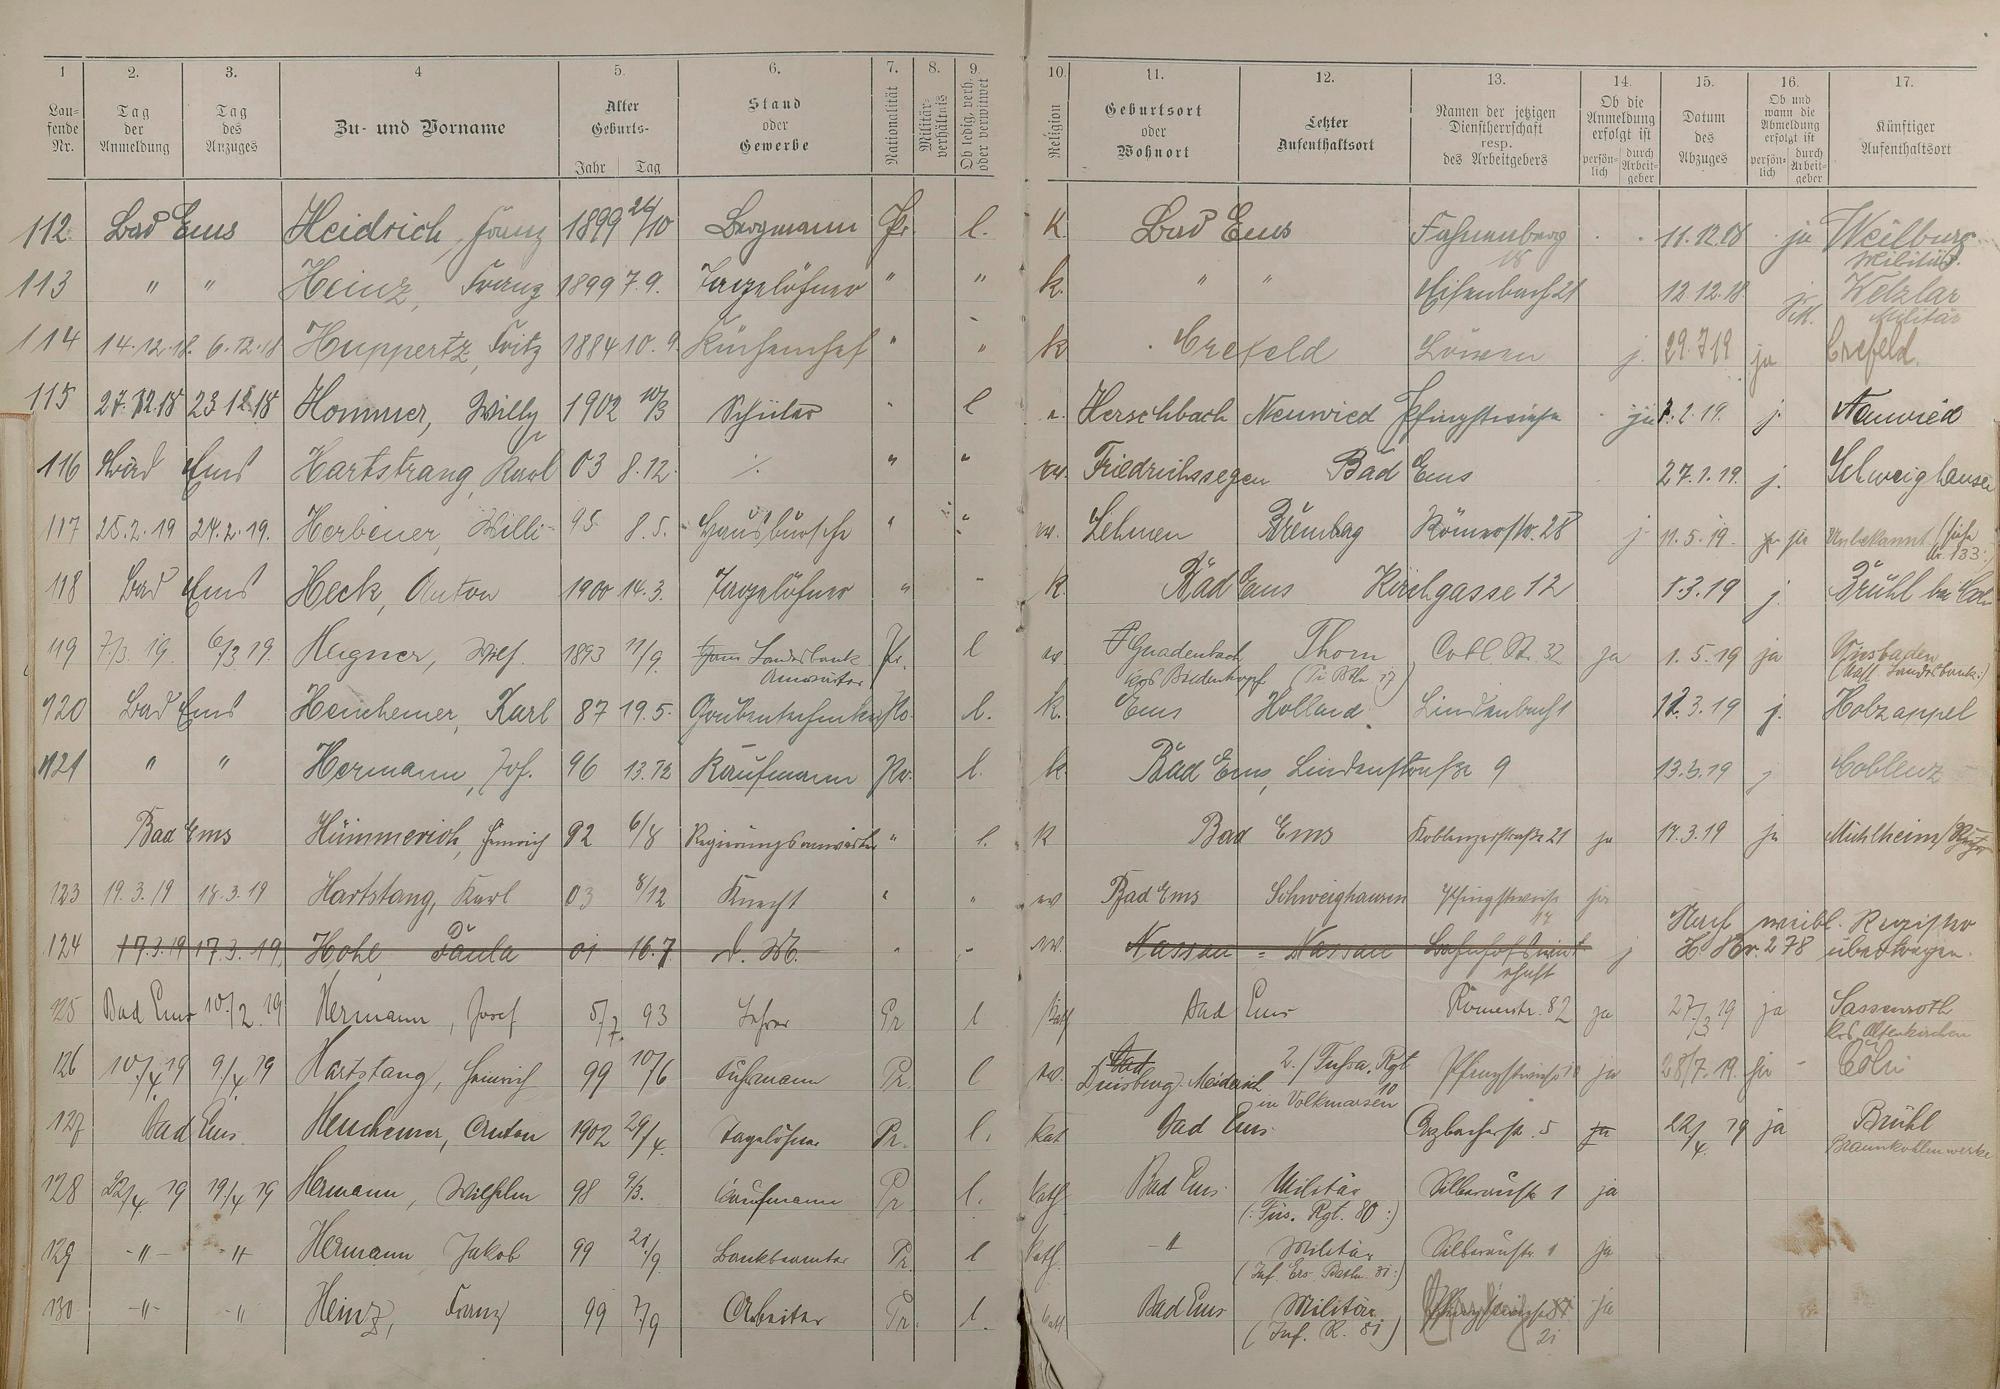 1 2. 3. 4 5. 6. 7. 8. 9. 10. 11. 12. 13. 14. 15. 16. 17.
Lau-
fende
Nr.
Tag
der
Anmeldung
Tag
des
Anzuges
Zu- und Vorname
Alter
Geburts-
Jahr Tag
Stand
oder
Gewerbe
Nationalität
Militär-
verhältnis
Ob ledig, verh.
oder verwitwet
Religion
Geburtsort
oder
Wohnort
Letzter
Aufenthaltsort
Namen der jetzigen
Dienstherrschaft
resp.
des Arbeitgebers
Ob die
Anmeldung
erfolgt ist
persön-
lich
durch
Arbeit-
geber
Datum
des
Abzuges
Ob und
wann die
Abmeldung
erfolgt ist
persön-
lich
durch
Arbeit-
geber
Künftiger
Aufenthaltsort
112. Bad Ems Heidrich, Franz 1899 /10 Bergmann Pr. l. k. Bad Ems Fahnenberg 11.12.18 ja Weilburg
18 Militär.
113 " " Heinz, Franz 1899 7.9. Tagelöhner " " k. " " Eisenbach 21 12.12.18 Wetzlar
Militär
114 14.12.18. 6.12.18 Huppertz, Fritz 1884 10.9. Küchenchef " " k Crefeld Löwen j. 29.7.19 ja Crefeld.
115 27.12.18 23.12.18 Hommer, Willy 1902 10/3 Schüler " l Herschbach Neuwied Pfingstwiese ja .2.19. j. Neuwied
116 Bad Ems Hartstrang, Karl 03 8.12. ./. " " ev. Friedrichssegen Bad Ems 27.1.19. j. Schweighausen
117 25.2.19 24.2.19. Herbener, Willi 95 8.5. Hausbursche " " ev. Lehmen Bremberg Römerstr. 28 j 11.5.19. Unbekannt (siehe
Nr. 133.)
118 Bad Ems Heck, Anton 1900 14.3. Tagelöhner " " k. Bad Ems Kirchgasse 12 1.3.19 j. Brühl bei Cöln
119 7/3. 19. 6/3 19. Hegner, Wilh. 1893 11/9. Landesbank Pr. l ev Gnadenbach Thorn Cobl. Str. 32 ja 1.5.19 ja Wiesbaden
Anwärter Biedenkopf (Pi Btl. 17) (Nass. Landesbank)
120 Bad Ems Henchemer, Karl 87 19.5. Grubentechniker Pr. l. k. Ems Holland. Lindenbach 1 12.3.19 j. Holzappel
121 " " Hermann, Jos. 96 13.12 Kaufmann Pr. l. k. Bad Ems, Lindenstraße 9 13.3.19 j Coblenz
Bad Ems Hümmerich, Heinrich 92 6/8 Regierungsanwärter " l. k Bad Ems Koblenzerstraße 21 ja 17.3.19 ja Mühlheim/Ruhr
123 19.3.19 18.3.19 Hartstang, Karl 03 8/12 Knecht " " ev Bad Ems Schweighausen Pfingstwiese ja
124 17.3.19 17.3.19. Hohl Paula 01 16.7 D. M. " " ev. Nassau = Nassau Bahnhofswirt- j Nach weibl. Register
schaft H. Nr. 278 übertragen.
125 Bad Ems 10./2. 19 Hermann, Josef 5/7. 93 Lehrer Pr l Kath Bad Ems Römerstr. 82 ja 27/3 19 ja Sassenroth
Krs. Altenkirchen
126 10./4 19 9/4 19 Hartstang, Heinrich 99 10/6 Fuhrmann Pr. l ev. Bad 2./ Fußa. Rgt 10 Pfingstwiese 10 ja 28/7.19. Cöln
Duisburg-Meiderich in Volkmarsen
127 Bad Ems. Henchemer, Anton 1902 29/4. Tagelöhner Pr. l. Kat Bad Ems. Arzbacherstr. 5 ja 22/4. 19 ja Brühl
Braunkohlenwerke
128 22/4 19 19/4 19 Hermann, Wilhelm 98 9/3. Kaufmann Pr l. Kath. Bad Ems. Militär Silberaustr. 1 ja
(: Füs. Rgt. 80 :)
129 -"- " Hermann Jakob 99 21./9 Bankbeamter Pr. l Kath. -" Militär Silberaustr. 1 ja
(Inf. Ers. Batln. 81:)
130 -"- " Heinz, Franz 99 7/9 Arbeiter Pr. l. Kath Bad Ems Militär ja
(Inf. R. 81) 21